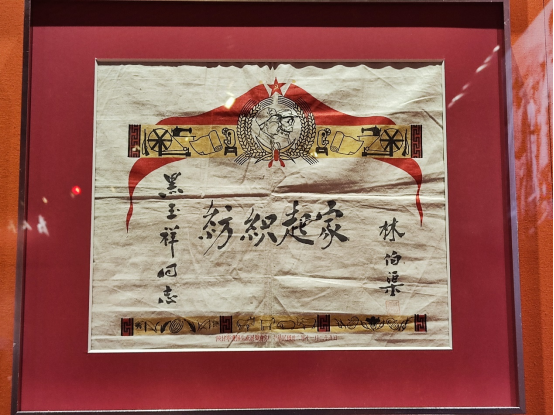 黑玉祥同志
纺织起家
林伯渠